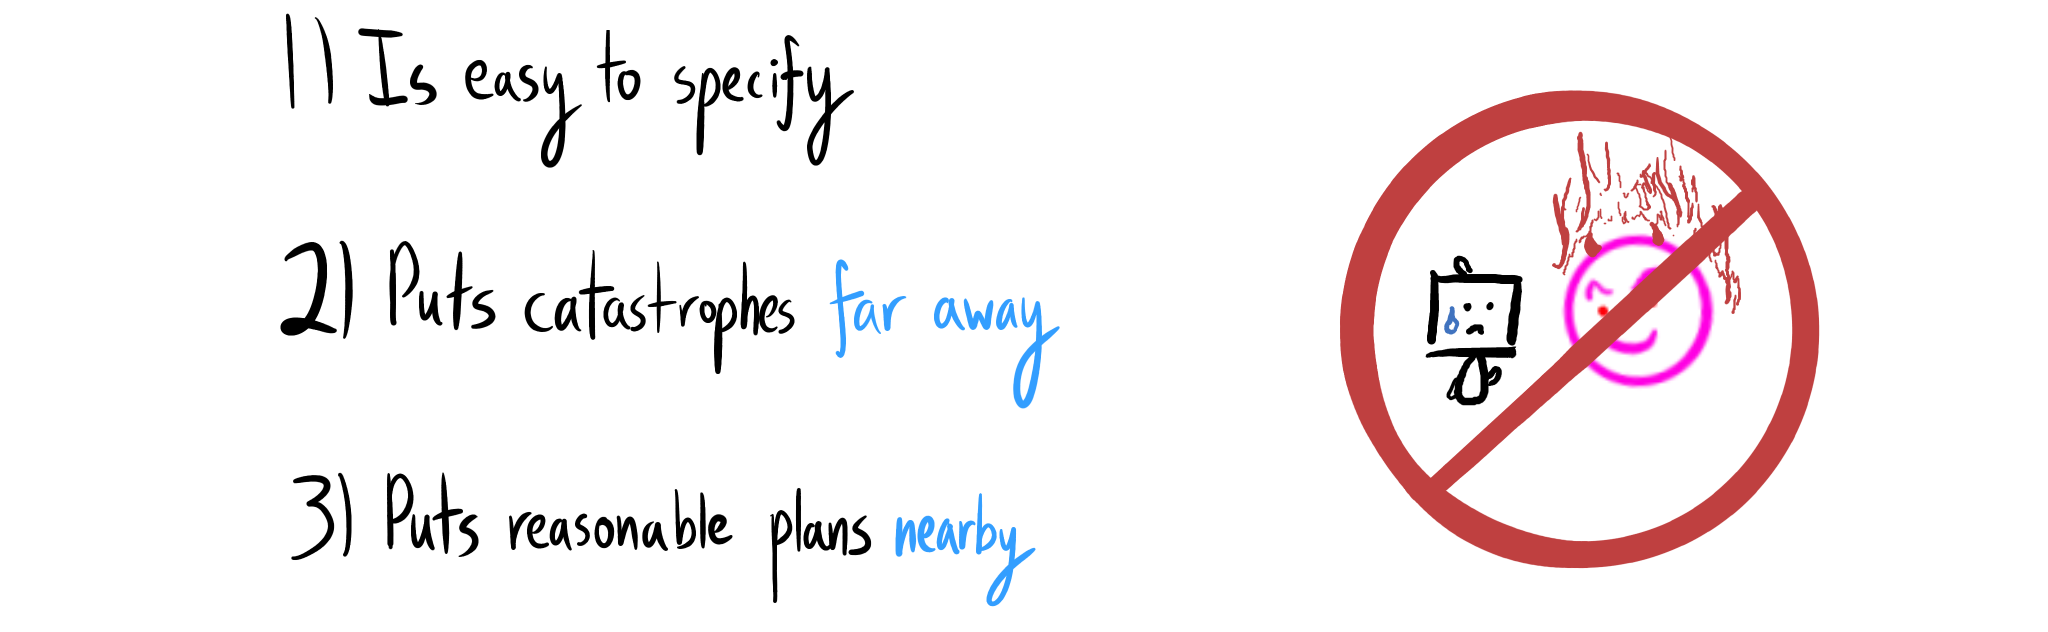 1) Is easy to specify
2) Puts catastrophes far away
3) Puts reasonable plans nearby